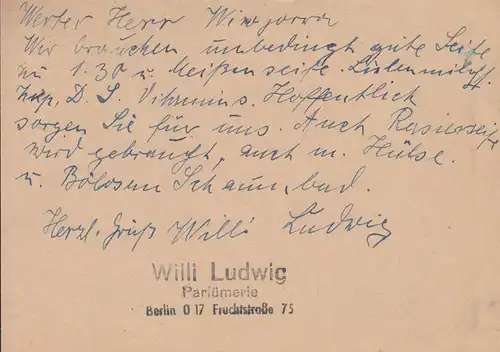 Werter Herr
Wir brauchen unbedingt gute Seife
zu 1.30 u. Meißen seife. Lilienmilch.
D. S. Vitamin S. Hoffentlich
sorgen Sie für uns. Auch Rasierseife
wird gebraucht, auch m. Hülse.
u. Schaumbad.
Herzl. Gruß Willi Ludwig
Willi Ludwig
Parfümerie
Berlin O 17 Fruchtstraße 75